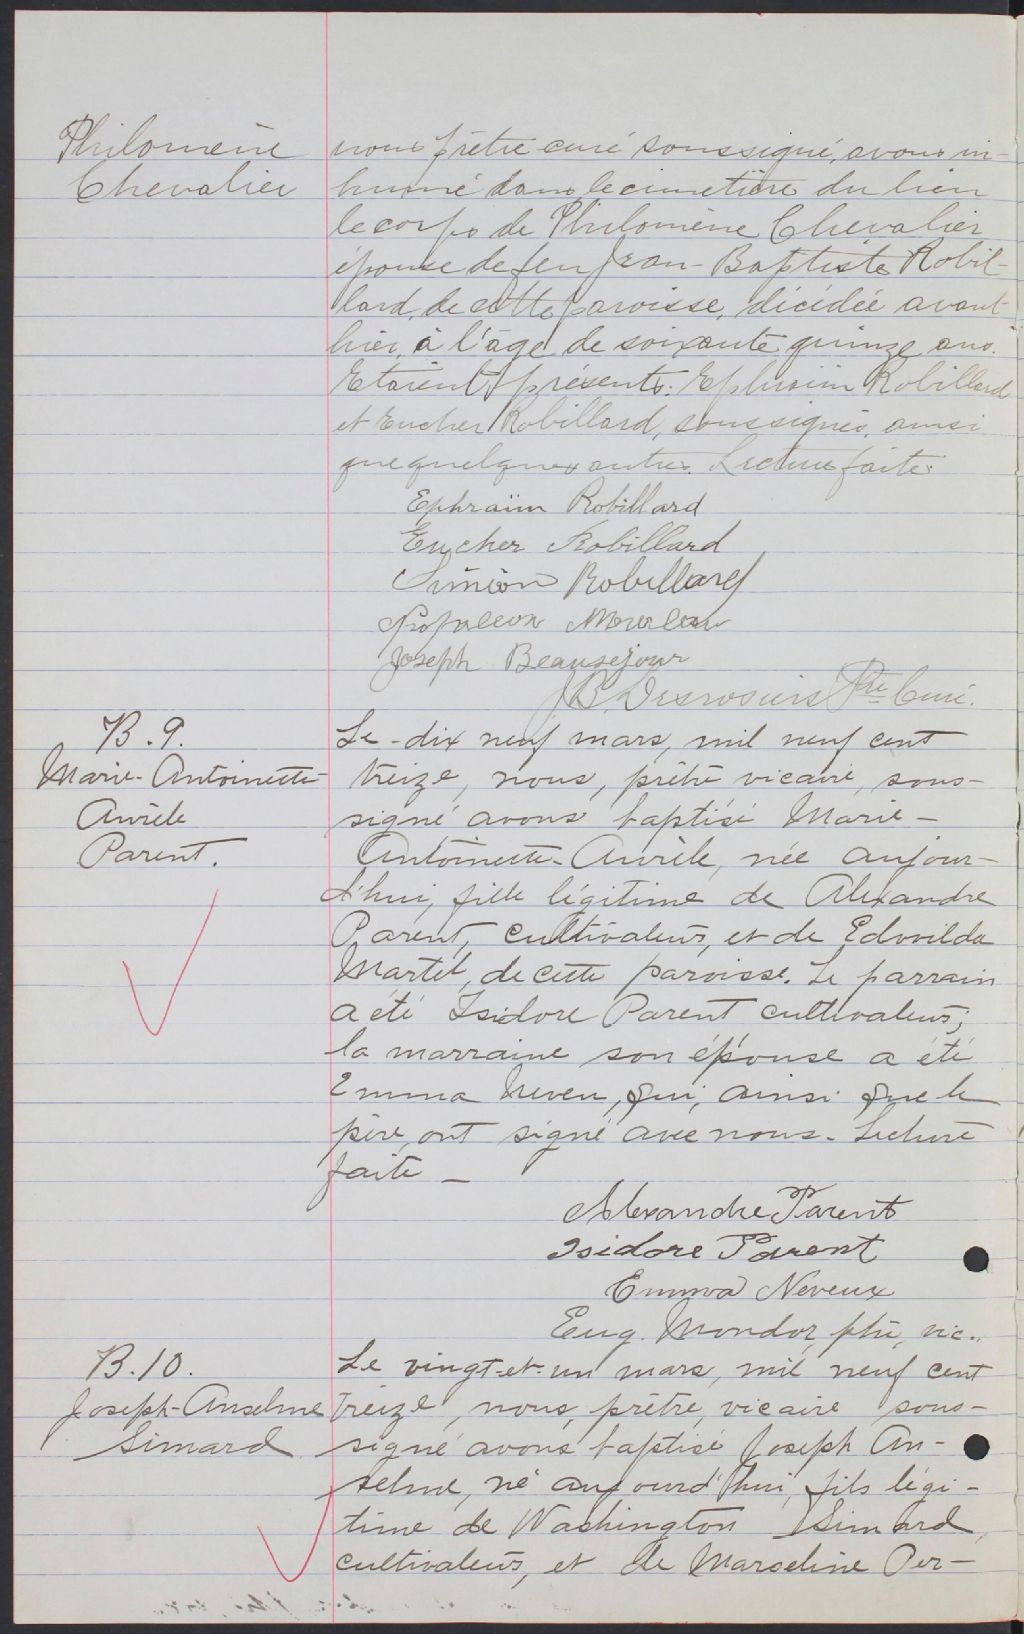 Philomène
Chevalier
nous prêtre curé soussigné, avons in-
humé dans le cimetière du lieu
le corps de Philomène Chevalier
épouse de feu Jean-Baptiste Robil-
lard, de cette paroisse, décédée avant
hier, à l'âge de soixante quinze ans.
Etaient présents: Ephraim Robillard
et Eucher Robillard, soussignés, ainsi
que quelques autres. Lecture faite.
Ephraïm Robillard
Eucher Robillard
Siméon Robillard
Joseph Beausejour
J.B. Desrosiers Ptre Curé.
B. 9.
Marie-Antoinette
Aurèle
Parent.
Le dix neuf mars, mil neuf cent
treize, nous, prêtre vicaire, sous-
signé avons baptisé Marie-
Antoinette-Aurèle, née aujour-
d'hui, fille légitime de Alexandre
Parent, cultivateur, et de Edwilda
Martel, de cette paroisse. Le parrain
a été Isidore Parent cultivateur;
la marraine son épouse a été
Emma Neveu, qui, ainsi que le
père, ont signé avec nous. Lecture
faite -
Alexandre Parent
Isidore Parent
Emma Neveux
Eug. Mondor, ptre, vic..
B. 10.
Joseph-Anselme
Simard
Le vingt-et-un mars, mil neuf cent
treize, nous, prêtre, vicaire sous-
signé avons baptisé Joseph An-
selme, né aujourd'hui, fils légi-
time de Washington Simard,
cultivateur, et de Marseline Per-